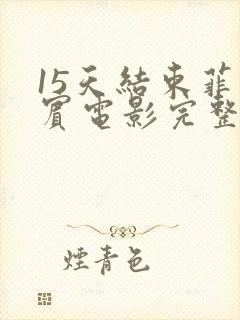 15天結束菲
賓電影完整
煙青色